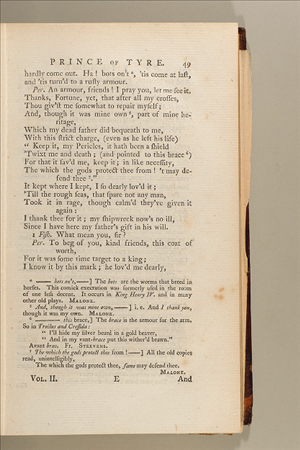 PRINCE OF TYRE. 49
hardly come out. Ha! bots on't⁴, 'tis come at last,
and 'tis turn'd to a rusty armour.
Per. An armour, friends! I pray you, let me see it.
Thanks, Fortune, yet, that after all my crosses,
Thou giv'st me somewhat to repair myself;
And, though it was mine own⁵, part of mine he-
ritage,
Which my dead father did bequeath to me,
With this strict charge, (even as he left his life)
"Keep it, my Pericles, it hath been a shield
'Twixt me and death; (and pointed to this brace⁶)
For that it sav'd me, keep it; in like necessity,
The which the gods protect thee from! 't may de-
fend thee⁷."
It kept where I kept, I so dearly lov'd it;
'Till the rough seas, that spare not any man,
Took it in rage, though calm'd they've given it
again:
I thank thee for it; my shipwreck now's no ill,
Since I have here my father's gift in his will.
1 Fish. What mean you, sir?
Per. To beg of you, kind friends, this coat of
worth,
For it was some time target to a king;
I know it by this mark; he lov'd me dearly,
⁴ —— bots on't,——] The bots are the worms that breed in
horses. This comick execration was formerly used in the room
of one less decent. It occurs in King Henry IV. and in many
other old plays. MALONE.
⁵ And, though it was mine own,——] i. e. And I thank you,
though it was my own. MALONE.
⁶ —— this brace,] The brace is the armour for the arm.
So in Troilus and Cressida:
"I'll hide my silver beard in a gold beaver,
"And in my vant-brace put this wither'd brawn."
Avant bras. Fr. STEEVENS.
⁷ The which the gods protect thee from!——] All the old copies
read, unintelligibly,
The which the gods protect thee, fame may defend thee.
MALONE.
VOL. II. E And